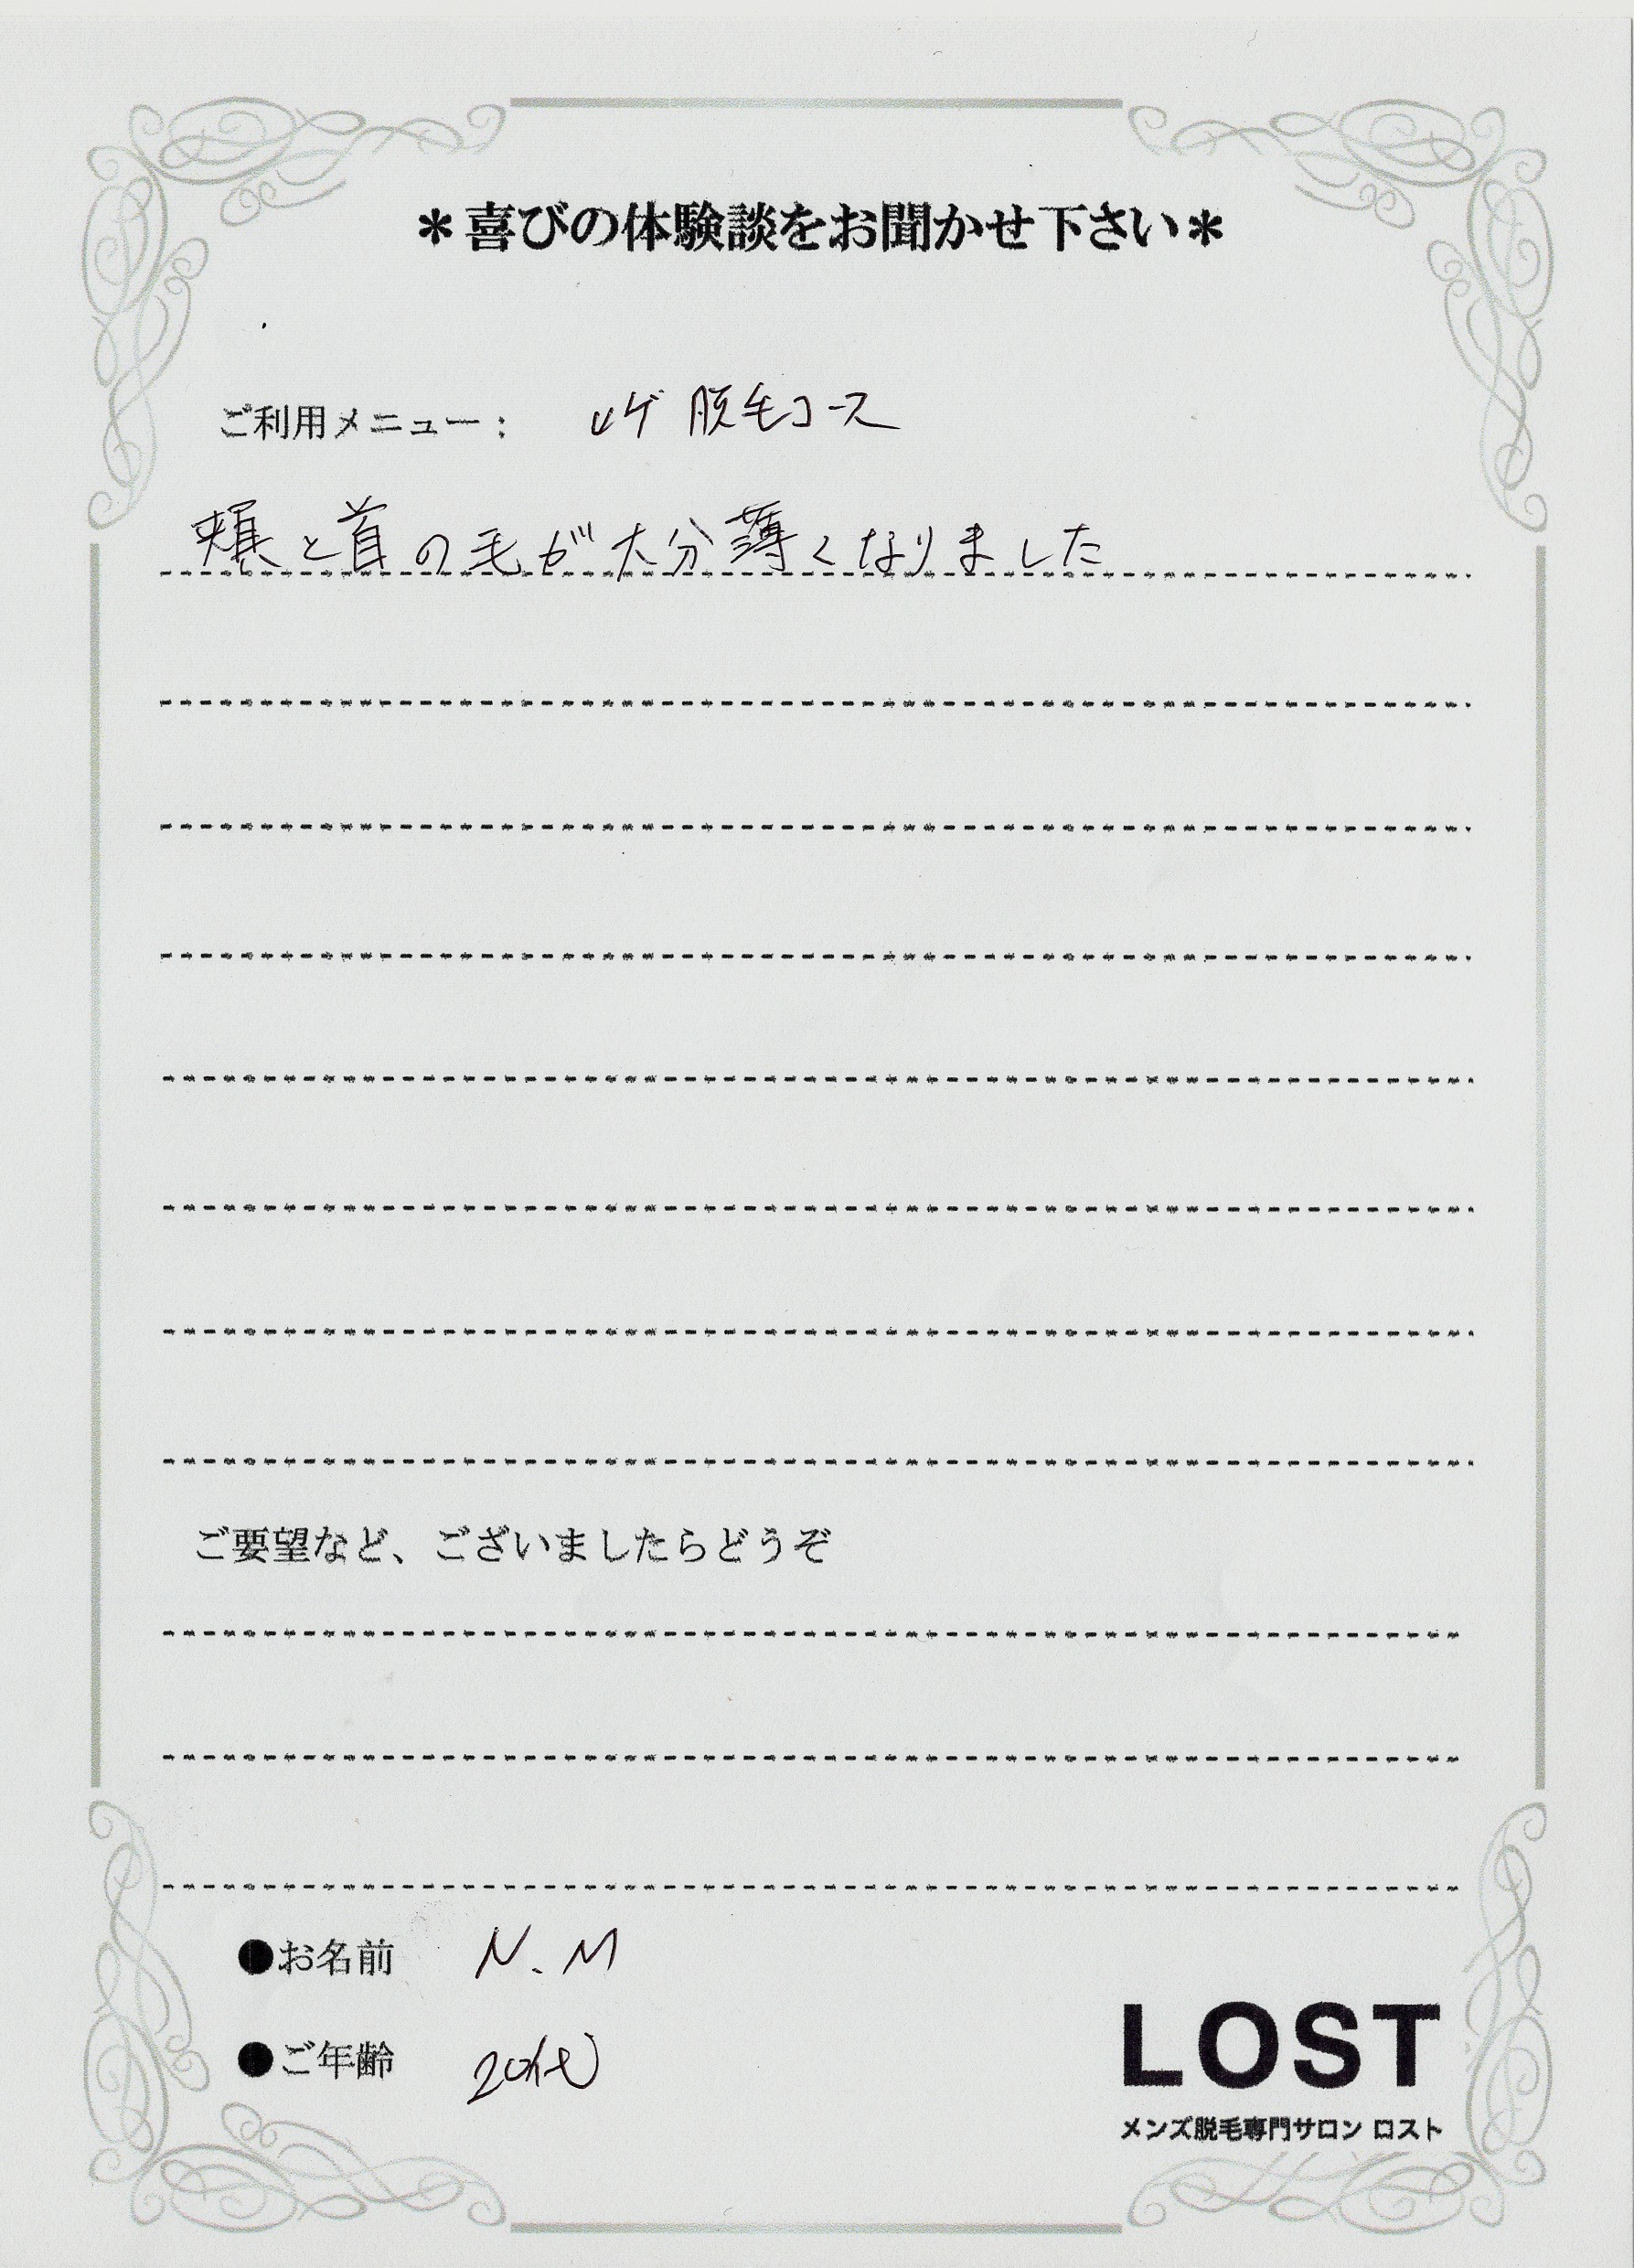 ＊喜びの体験談をお聞かせ下さい＊
ご利用メニュー： ヒゲ脱毛コース
頬と首の毛が大分薄くなりました
ご要望など、ございましたらどうぞ
●お名前 N.M
●ご年齢 20代
LOST
メンズ脱毛専門サロン ロスト